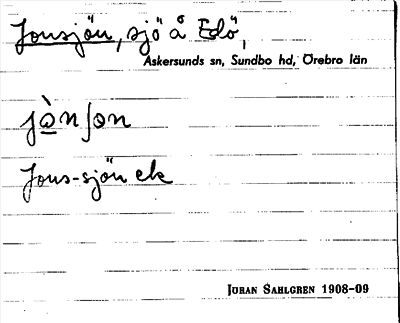 Jonsjön, sjö å Edö,
Askersunds sn, Sundbo hd, Örebro län
jònʃon
Jons-sjön ek
Jöran Sahlgren 1908-09